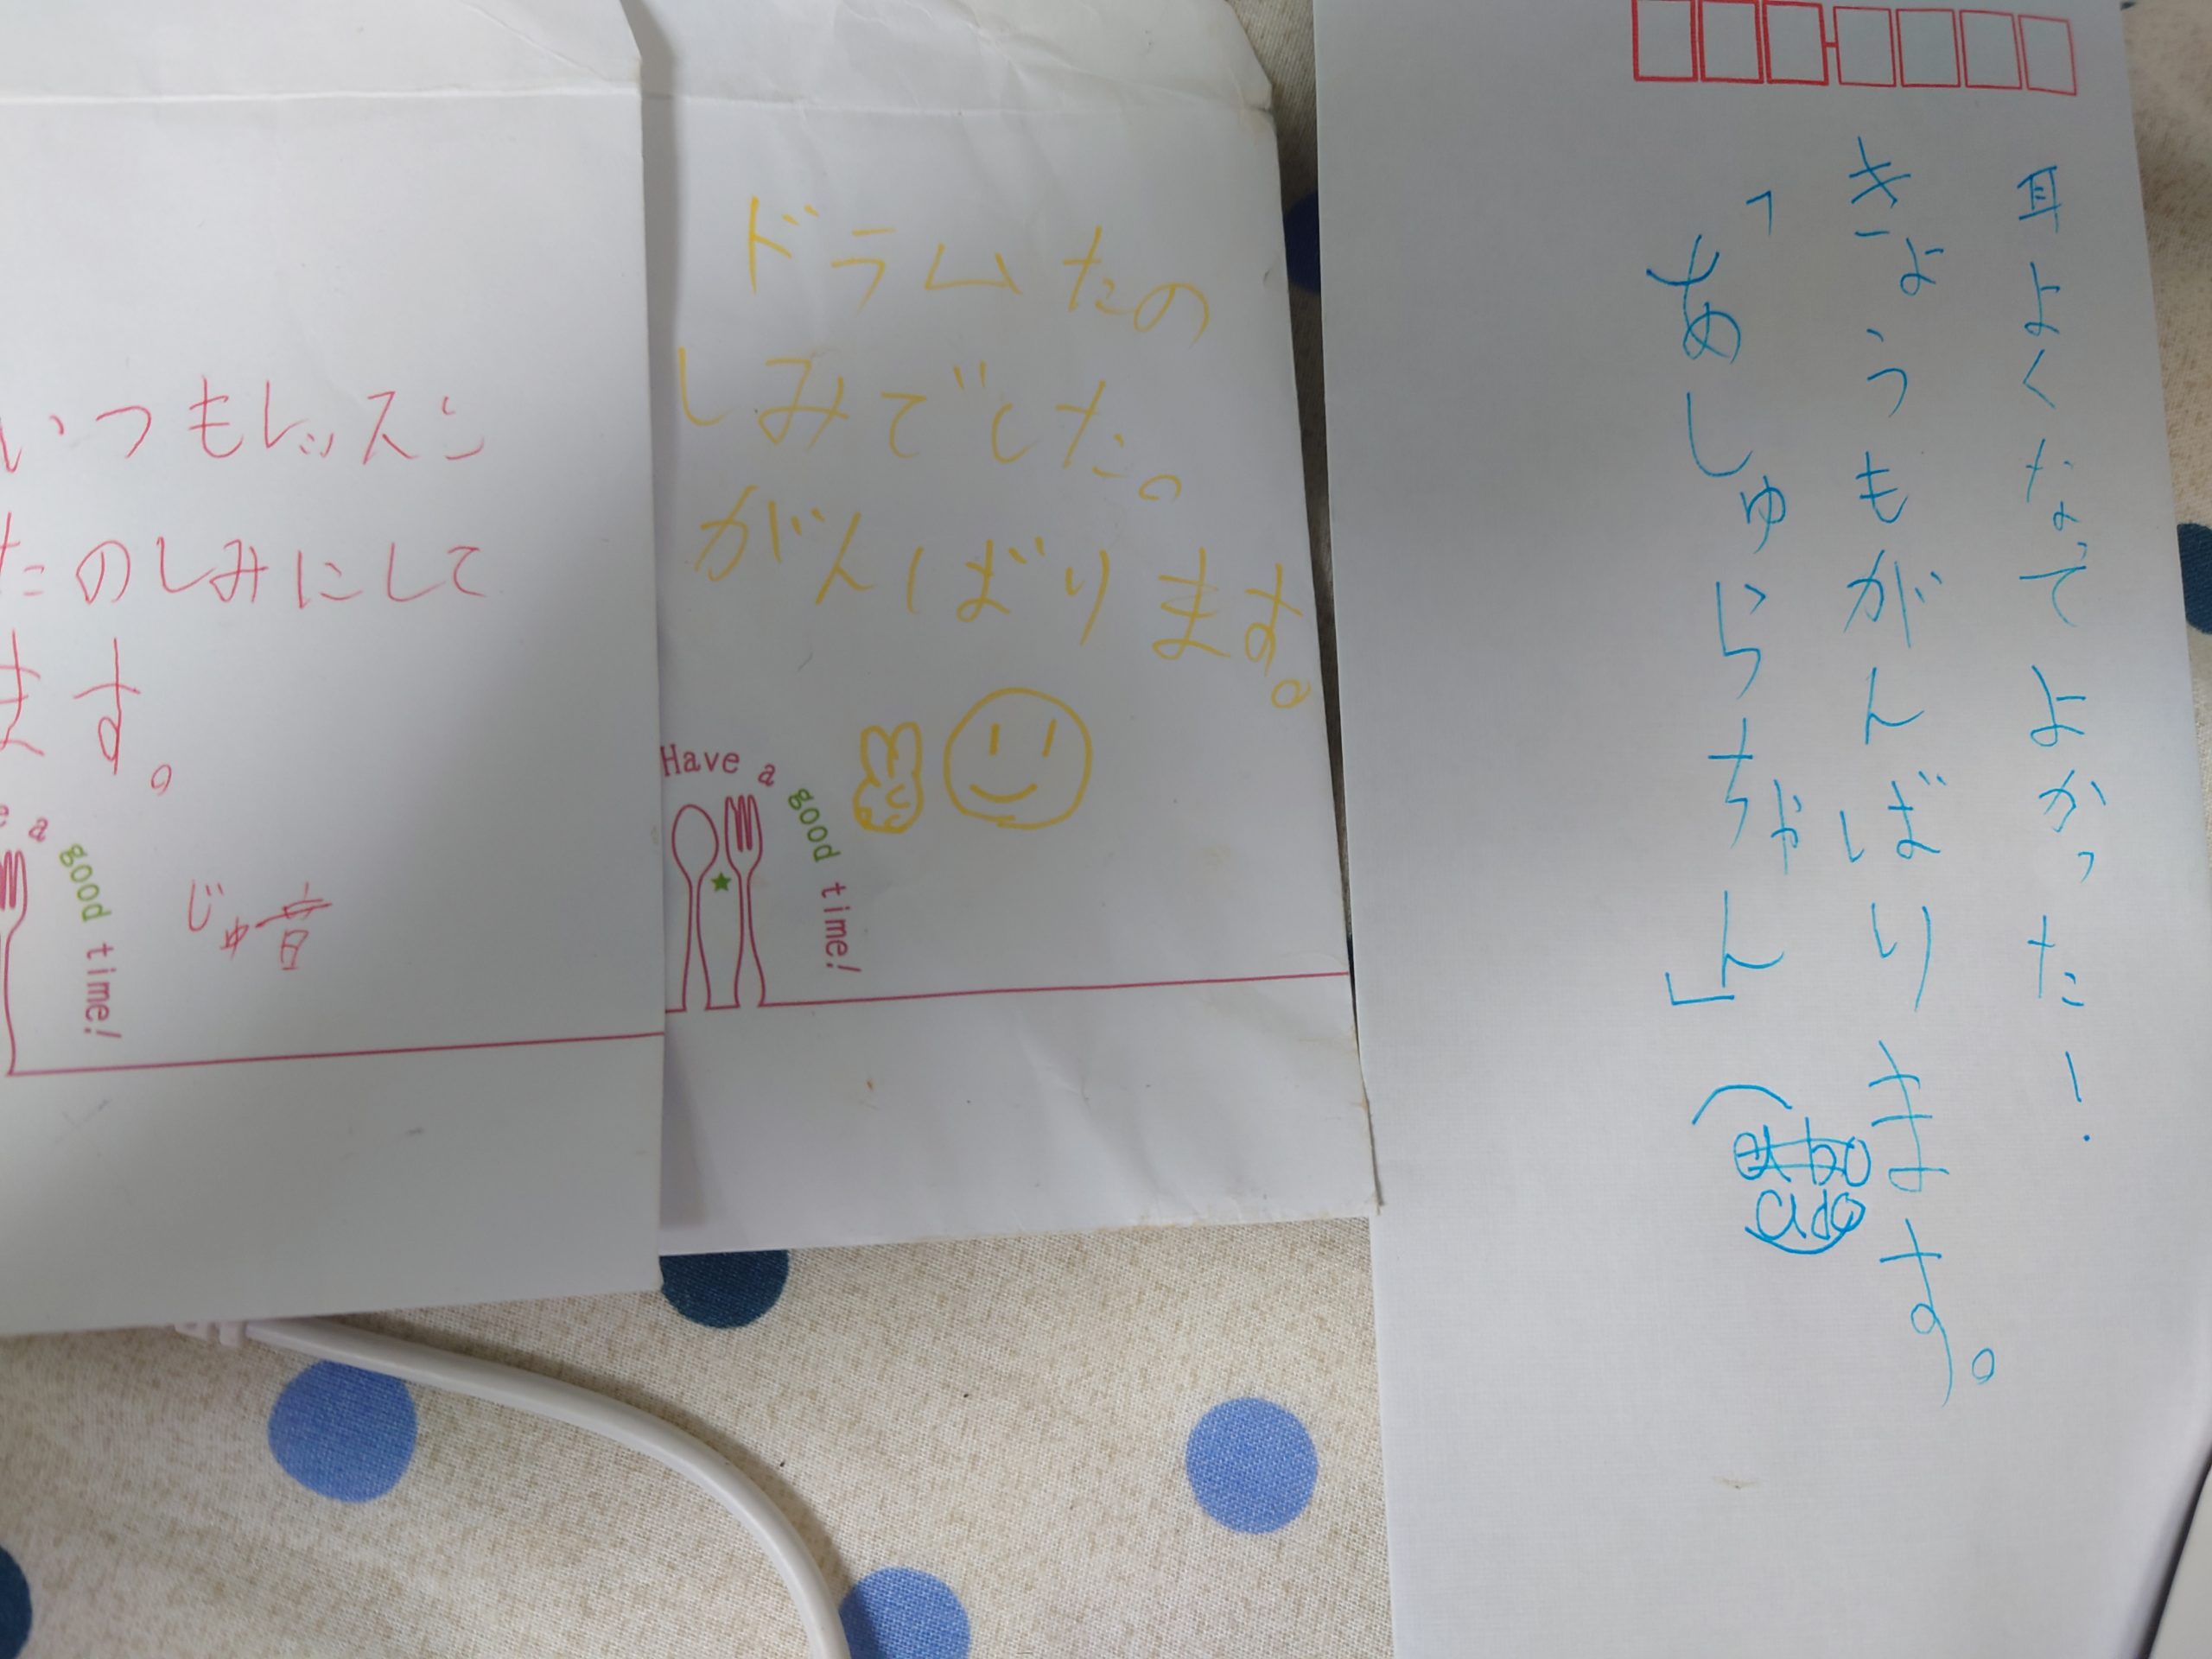 いつもレッスン
たのしみにして
ます。
e a good time!
じゅ音
ドラムたの
しみでした。
がんばります。
Have a good time!
耳よくなってよかった!
きょうもがんばります。
「あしゅらちゃん」(
ado